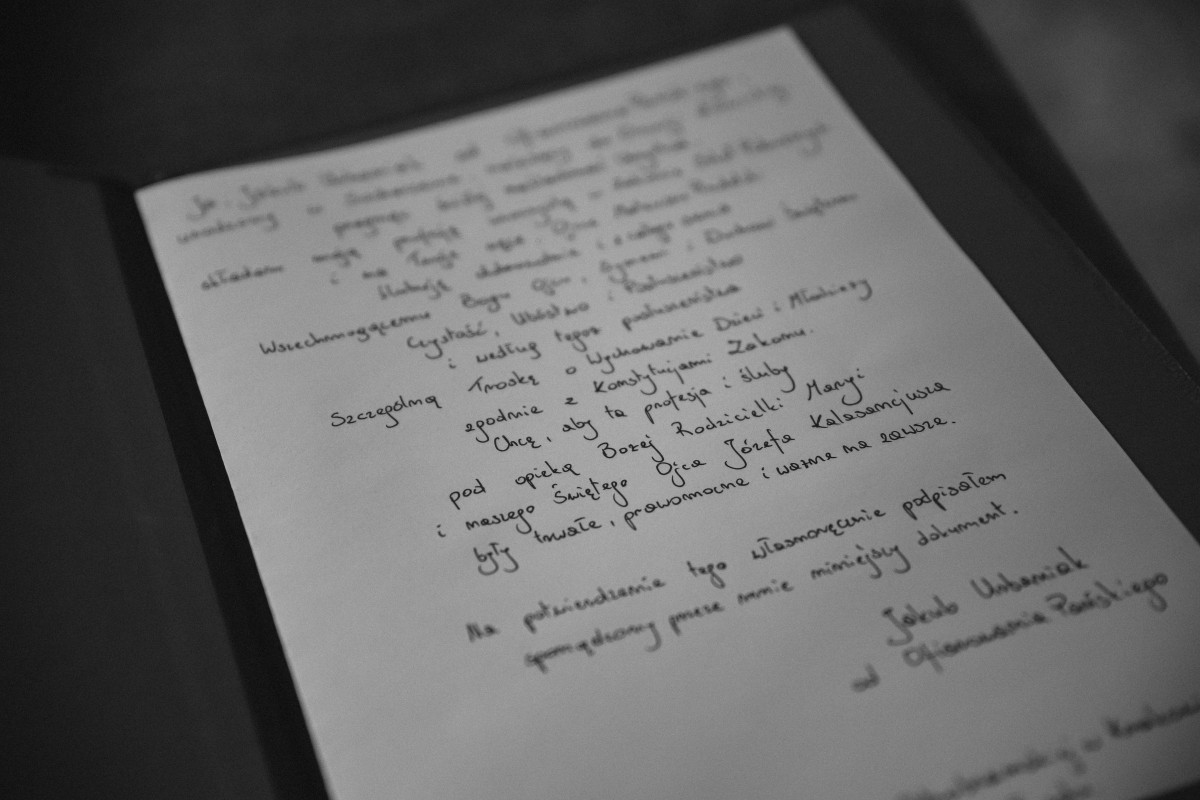 Ja, Jakub Urbaniak od Ofiarowania Pańskiego
urodzony w
pragnąc
składam moją profesję
i na Twoje ręce, Ojcze
ślubuję dobrowolnie i z całego serca
Wszechmogącemu Bogu Ojcu, Synowi i Duchowi Świętemu
Czystość, Ubóstwo i Posłuszeństwo
i według tegoż posłuszeństwa
Szczególną Troskę o Wychowanie Dzieci i Młodzieży
zgodnie z Konstytucjami Zakonu.
Chcę, aby ta profesja i śluby
pod opieką Bożej Rodzicielki Maryi
i naszego Świętego Ojca Józefa Kalasancjusza
były trwałe, prawomocne i ważne na zawsze.
Na potwierdzenie tego własnoręcznie podpisałem
sporządzony przeze mnie niniejszy dokument.
Jakub Urbaniak
od Ofiarowania Pańskiego